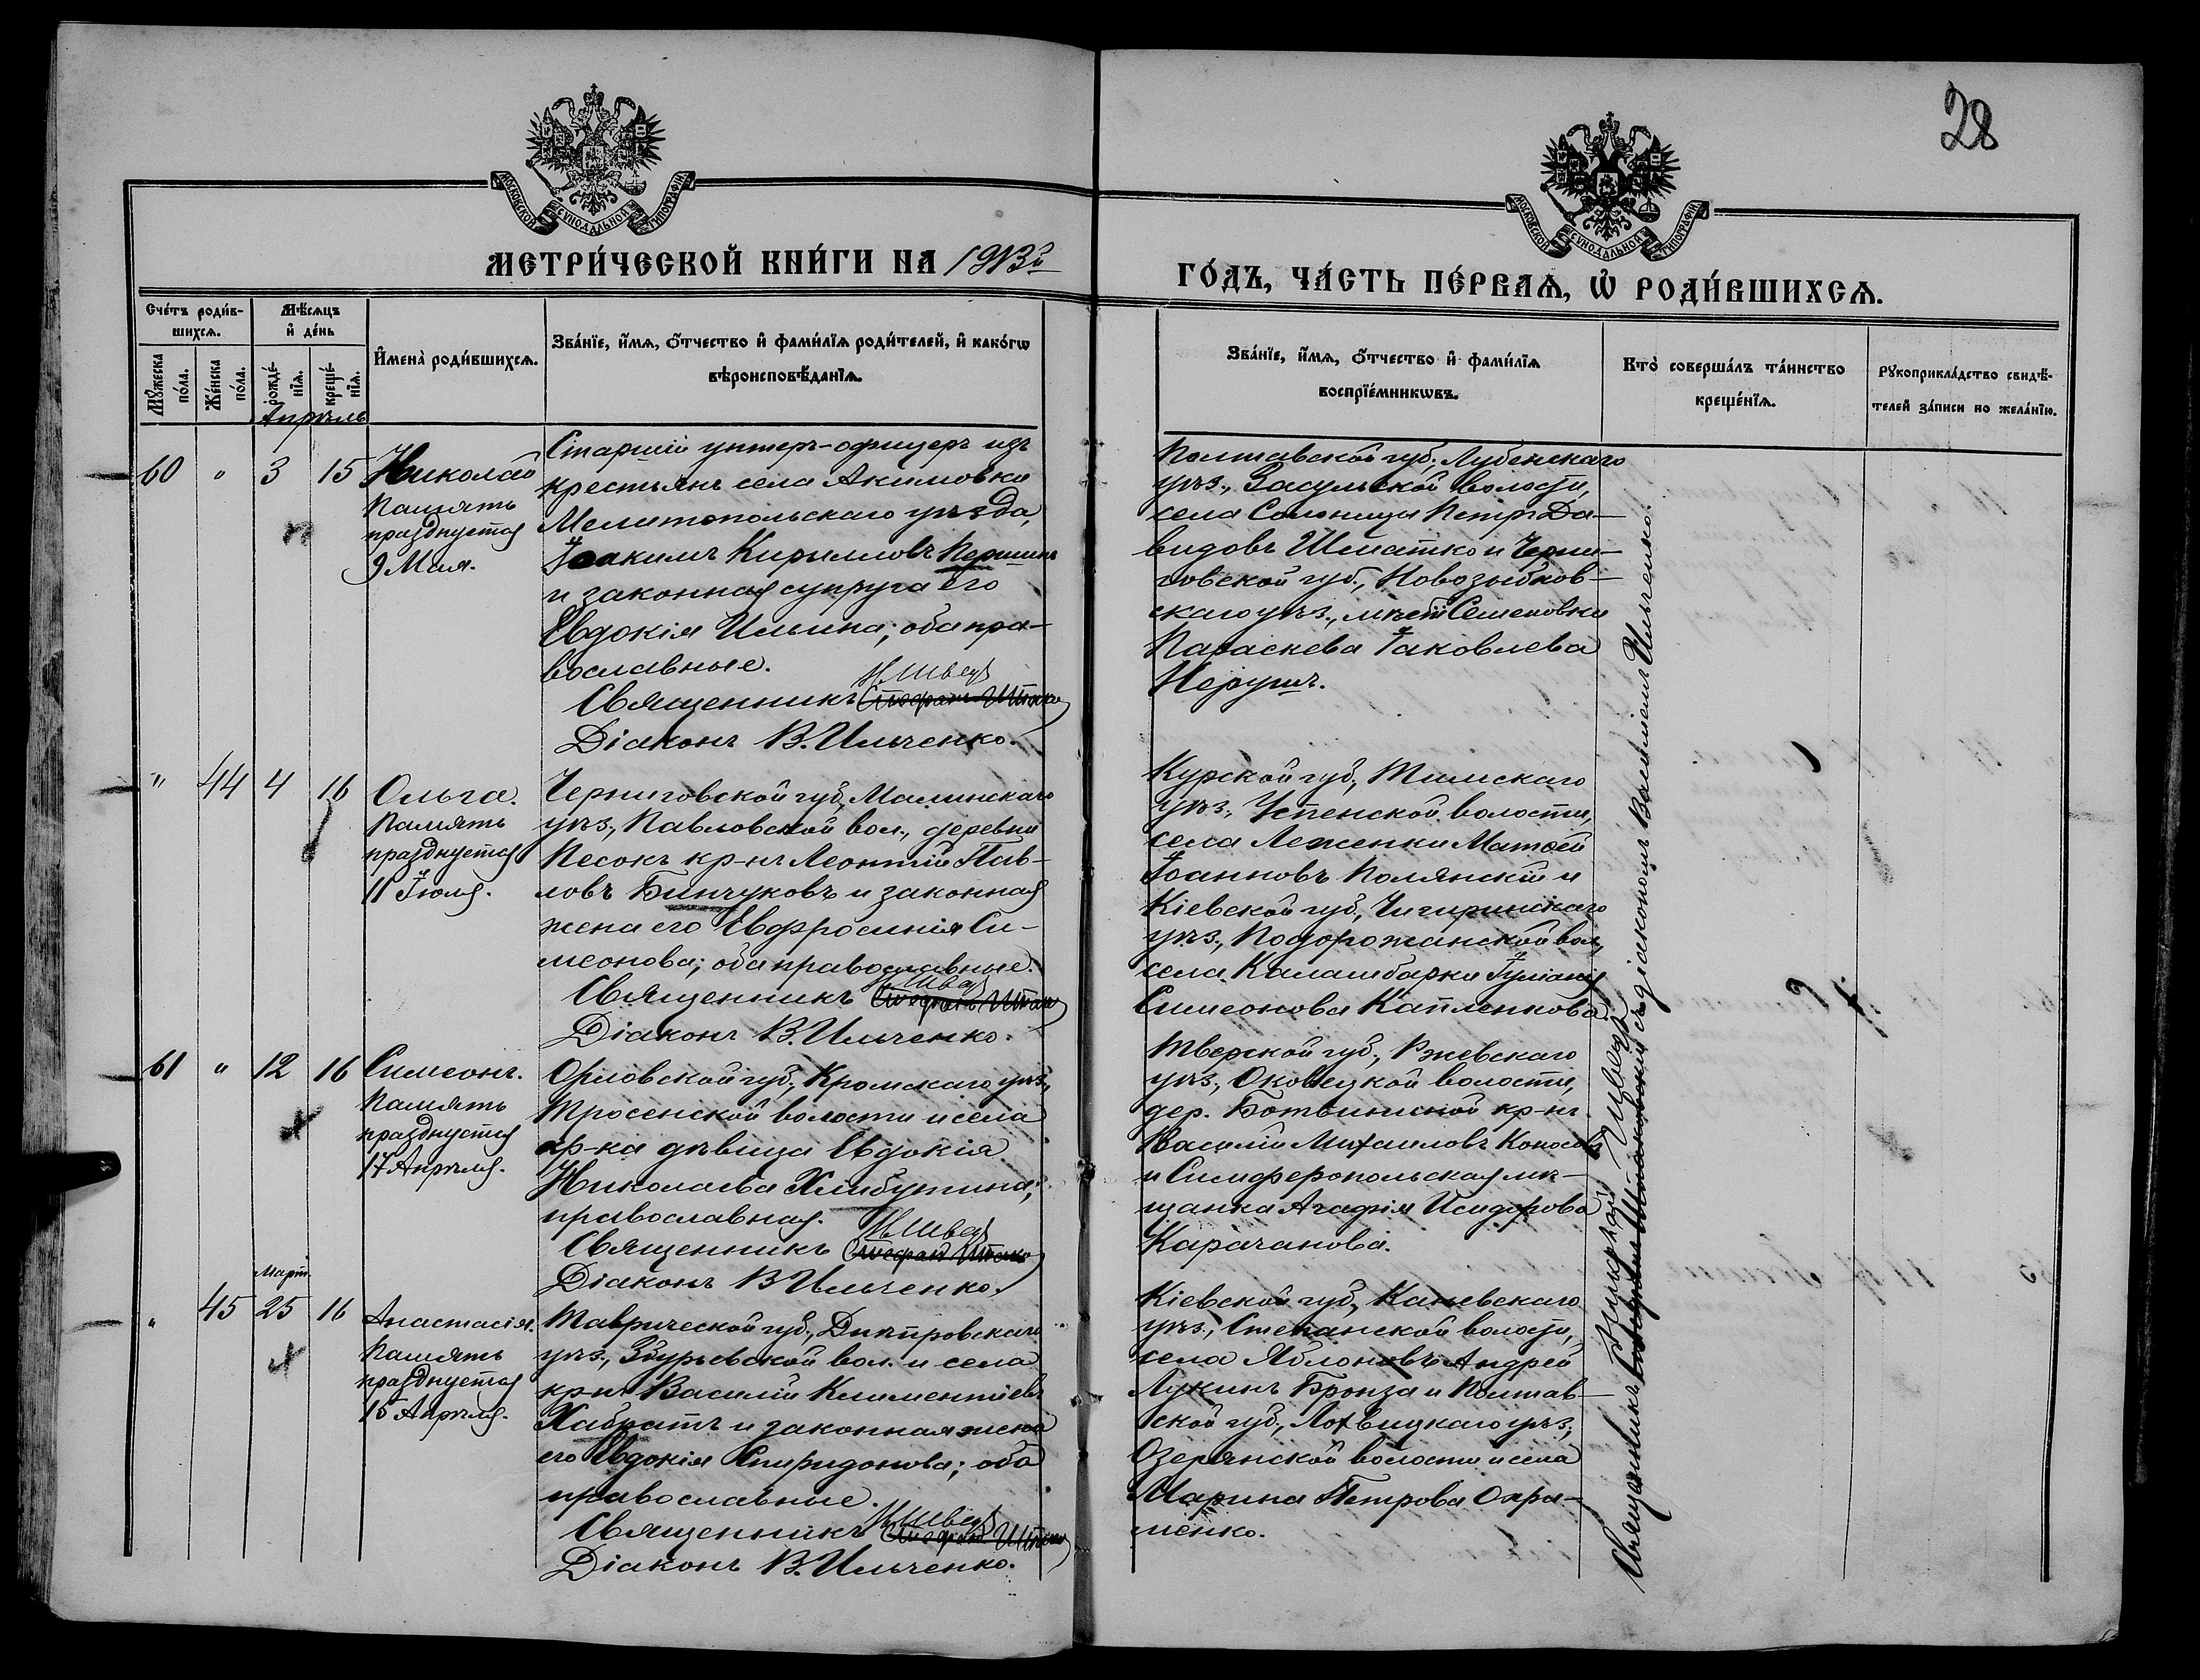 28
МОСКОВСКОЙ СѴНОДАЛЬНОЙ ТИПОГРАФІИ
МОСКОВСКОЙ СѴНОДАЛЬНОЙ ТИПОГРАФІИ
МЕТРИ́ЧЕСКОЙ КНИ́ГИ НА 1913й
ГО́ДЪ, ЧА́СТЬ ПЕ́РВАѦ, Ѡ҆ РОДИ́ВШИХСѦ.
Сче́тъ роди́в-
шихсѧ.
Мѣ́сѧцъ
и҆ де́нь
Мꙋ́жеска
по́ла.
Же́нска
по́ла.
рожде́-
нїѧ.
креще́-
нїѧ.
И҆мена̀ роди́вшихсѧ.
Зва́нїе, и҆́мѧ, ѻ҆́тчество и҆ фами́лїѧ роди́телей, и҆ како́гѡ
вѣроисповѣ́данїѧ.
Зва́нїе, и҆́мѧ, ѻ҆́тчество и҆ фами́лїѧ
воспрїе́мникѡвъ.
Кто̀ соверша́лъ та́инство
креще́нїѧ.
Рꙋкоприкла́дство свидѣ́-
телей за́писи по жела́нїю.
Апрѣль
60 " 3 15 Николай
Память
празднуется
9 Мая.
Старшій унтеръ-офицеръ изъ
крестьянъ села Акимовки
Мелитопольскаго уѣзда,
Іоакимъ Кирилловъ Першинъ
и законная супруга его
Евдокія Ильина; оба пра-
вославные.
Н. Швецъ
Священникъ Стефанъ
Діаконъ В. Ильченко.
Полтавской губ., Лубенскаго
уѣз., Засульской волости,
села Солоницы Петръ Да-
видовъ Шматко и Черни-
говской губ., Новозыбков-
скаго уѣз., мѣст. Семеновки
Параскева Іаковлева
" 44 4 16 Ольга.
Память
празднуется
11 Іюля.
Черниговской губ. Малинскаго
уѣз., Павловской вол., деревни
Песокъ кр-нъ Леонтій Пав-
ловъ Бинчуковъ и законная
жена его Евфросинія Си-
меонова; оба православные.
Н. Швецъ
Священникъ Стефанъ
Діаконъ В. Ильченко.
Курской губ., Тимскаго
уѣз., Успенской волости,
села Леженки Матѳей
Іоанновъ Полянскій и
Кіевской губ., Чигиринскаго
уѣз., Подорожанской вол.,
села Іуліанія
Симеонова Капленкова
61 " 12 16 Симеонъ.
Память
празднуется
17 Апрѣля.
Орловской губ., Кромскаго уѣз.,
Тросенской волости и села
кр-ка дѣвица Евдокія
Николаева Хлибутина;
православная.
Н. Швецъ
Священникъ Стефанъ
Діаконъ В Ильченко.
Тверской губ., Ржевскаго
уѣз., Оковецкой волости,
дер. кр-нъ
Василій Михаиловъ Коносовъ
и Симферопольская мѣ-
щанка Агафія Исидорова
Карачанова.
Март.
" 45 25 16 Анастасія.
Память
празднуется
15 Апрѣля.
Таврической губ., Днѣпровскаго
уѣз., Збурьевской вол. и села
кр-нъ Василій Климентіевъ
Хабратъ и законная жена
его Евдокія Спиридонова; оба
православные.
Н. Швецъ
Священникъ Стефанъ
Діаконъ В. Ильченко.
Кіевской губ., Каневскаго
уѣз., Степанской волости,
села Яблоновъ Андрей
Лукинъ Бронза и Полтав-
ской губ., Лохвицкаго уѣз.,
Озерянской волости и села
Марина Петрова Охри-
менко.
Священникъ Николай Швецъ съ діакономъ Василіемъ Ильченко.